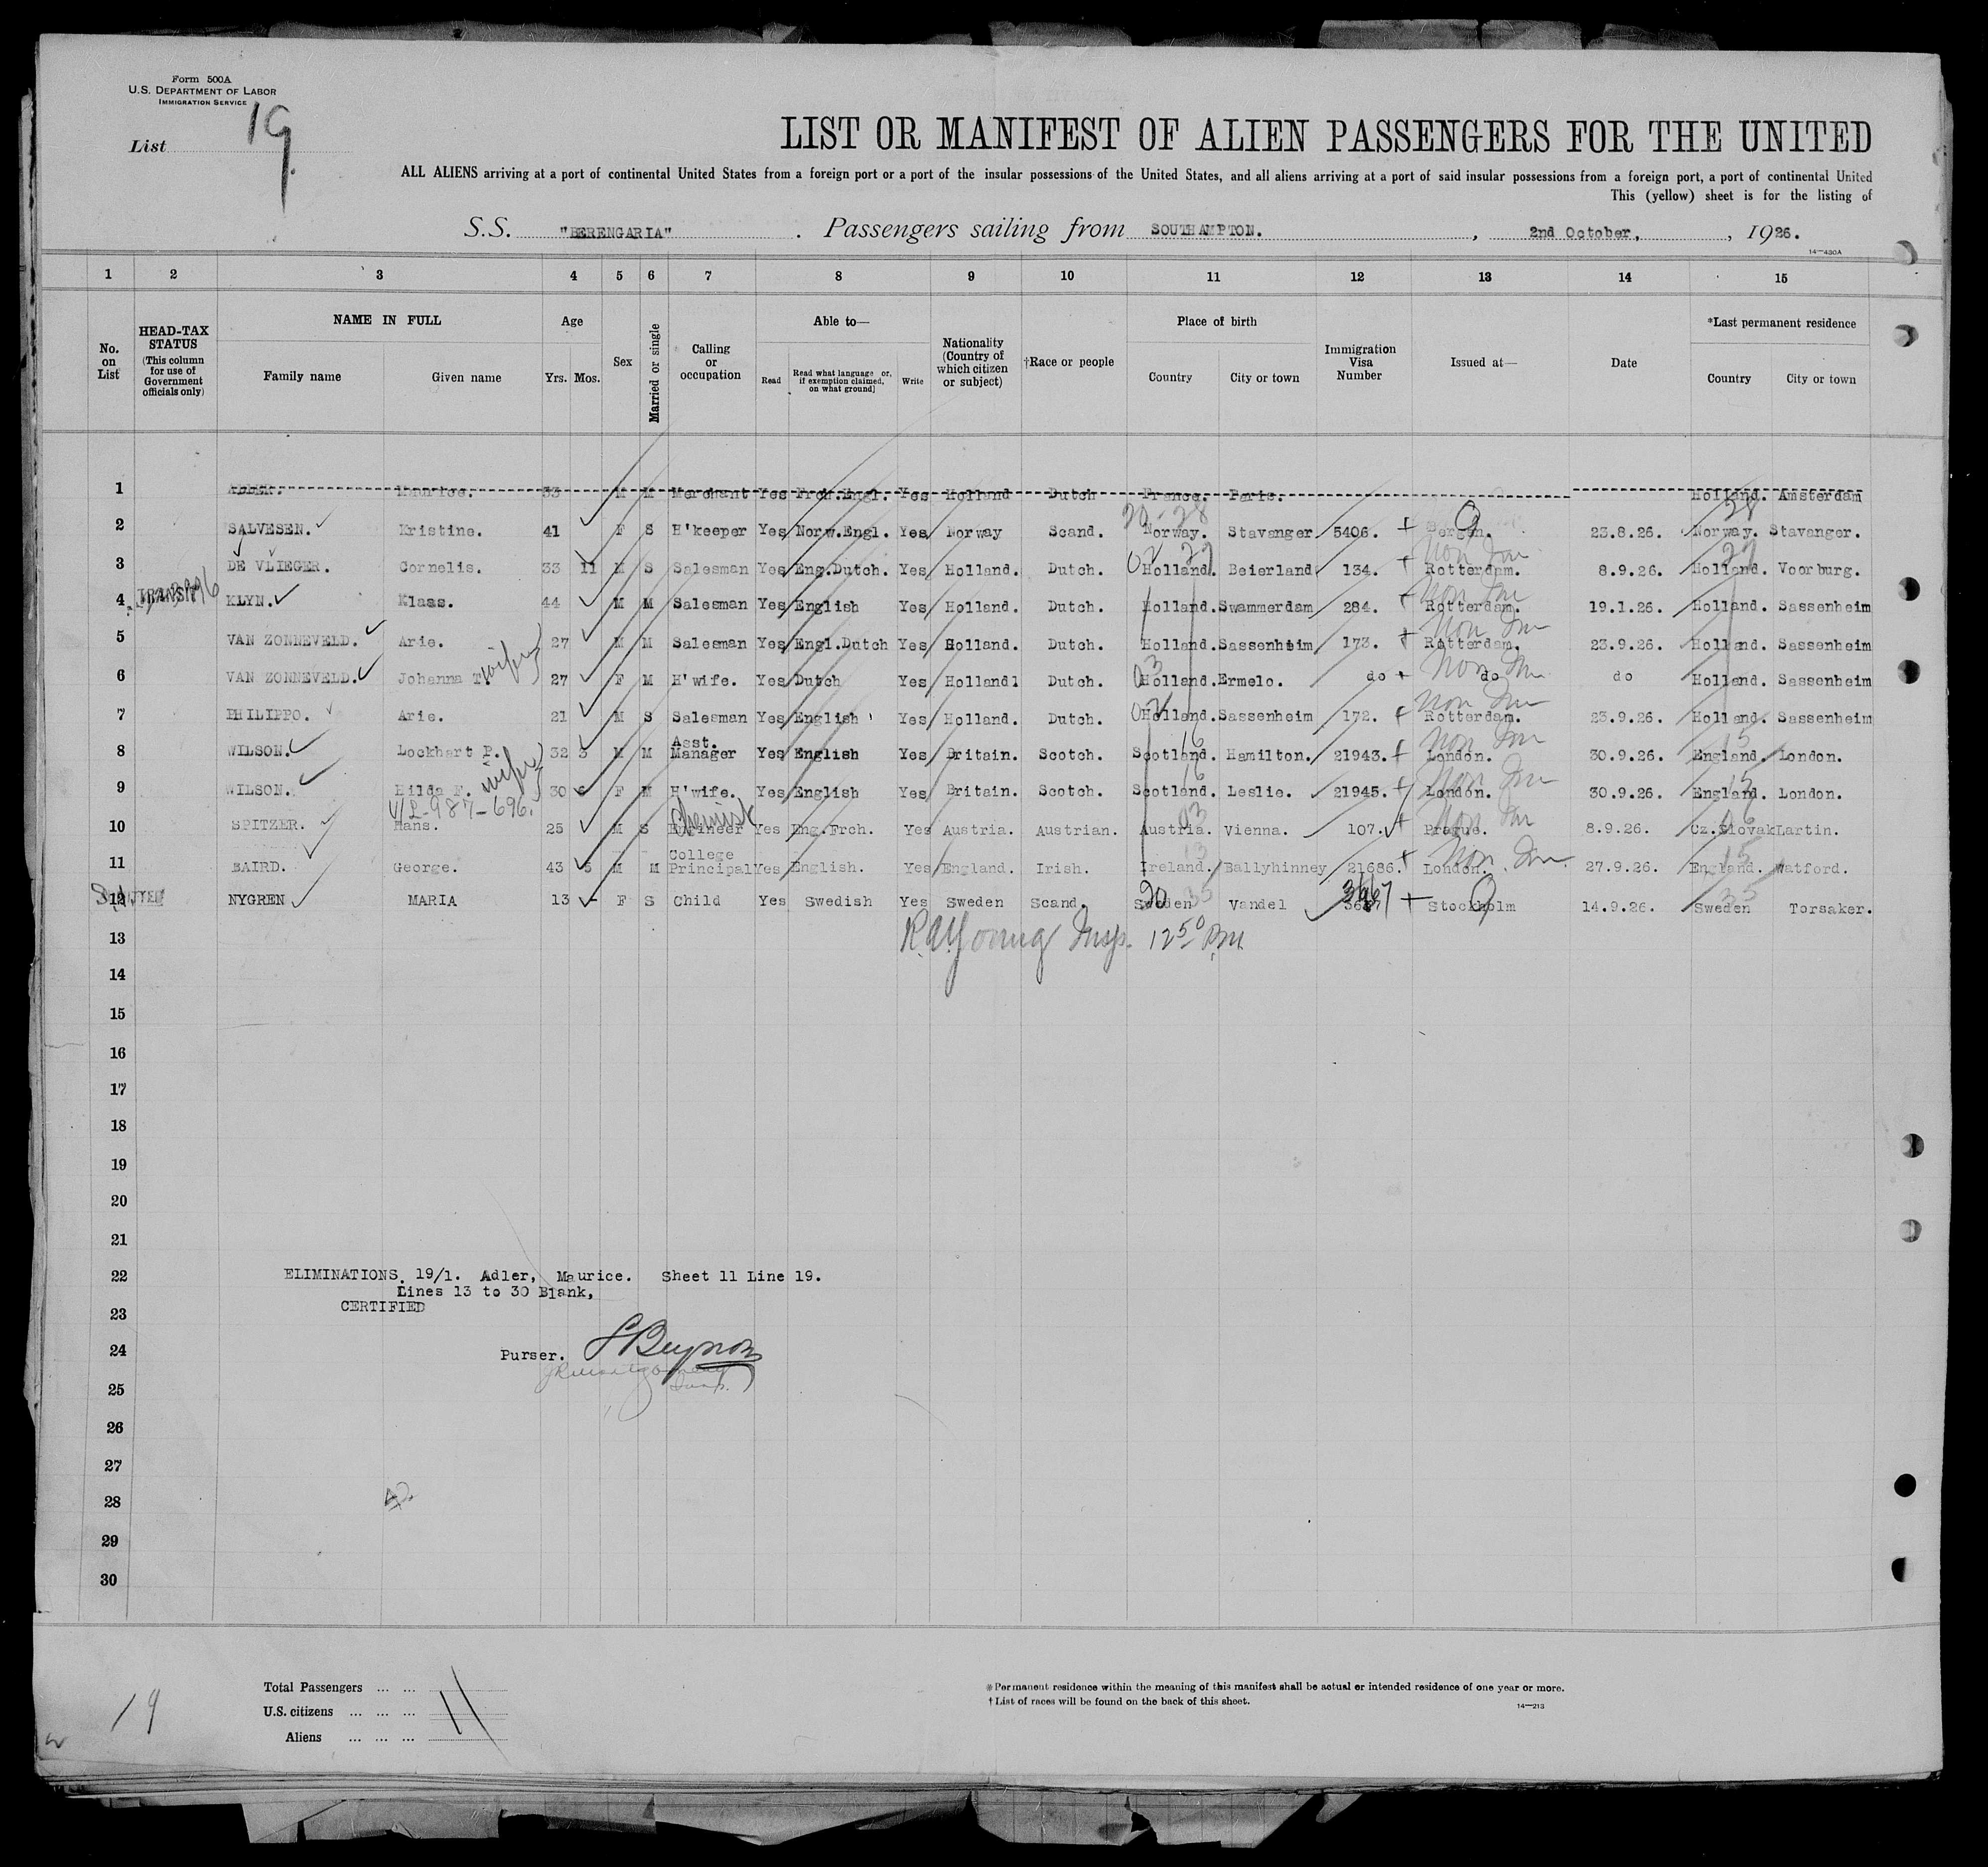 Form 500A
U.S. DEPARTMENT OF LABOR
IMMIGRATION SERVICE
List 19
LIST OR MANIFEST OF ALIEN PASSENGERS FOR THE UNITED
ALL ALIENS arriving at a port of continental United States from a foreign port or a port of the insular possessions of the United States, and all aliens arriving at a port of said insular possessions from a foreign port, a port of continental United
This (yellow) sheet is for the listing of
S.S. "BERENGARIA" . Passengers sailing from SOUTHAMPTON. , 2nd October, , 1926.
14—430A
1 2 3 4 5 6 7 8 9 10 11 12 13 14 15
No. on List
HEAD-TAX STATUS (This column for use of Government officials only)
NAME IN FULL
Family name Given name
Age
Yrs. Mos.
Sex
Married or single
Calling or occupation
Able to—
Read Read what language [or, if exemption claimed, on what ground] Write
Nationality (Country of which citizen or subject)
†Race or people
Place of birth
Country City or town
Immigration Visa Number
Issued at—
Date
*Last permanent residence
Country City or town
1 ADLER. Maurice. 33 M M Merchant Yes Frch.Engl. Yes Holland Dutch France. Paris. Holland. Amsterdam
20-28 28
2 SALVESEN. Kristine. 41 F S H'keeper Yes Norw.Engl. Yes Norway Scand. Norway. Stavanger 5406. Bergen. Q 23.8.26. Norway. Stavanger.
3 DE VLIEGER. Cornelis. 33 11 M S Salesman Yes Eng.Dutch. Yes Holland. Dutch. Holland. Beierland 134. Rotterdam. Non Im 8.9.26. Holland. Voorburg.
4 TRANSIT KLYN. Klaas. 44 M M Salesman Yes English Yes Holland. Dutch. Holland. Swammerdam 284. Rotterdam. Non Im 19.1.26. Holland. Sassenheim
5 VAN ZONNEVELD. Arie. 27 M M Salesman Yes Engl.Dutch Yes Holland. Dutch. Holland. Sassenheim 173. Rotterdam. Non Im 23.9.26. Holland. Sassenheim
6 VAN ZONNEVELD. Johanna T. wife 27 F M H'wife. Yes Dutch Yes Holland1 Dutch. Holland. Ermelo. do do Non Im do Holland. Sassenheim
7 PHILIPPO. Arie. 21 M S Salesman Yes English Yes Holland. Dutch. Holland. Sassenheim 172. Rotterdam. Non Im 23.9.26. Holland. Sassenheim
8 WILSON. Lockhart P. 32 3 M M Asst. Manager Yes English Yes Britain. Scotch. Scotland. Hamilton. 21943. London. Non Im 30.9.26. England. London.
9 WILSON. Hilda F. wife 30 6 F M H'wife. Yes English Yes Britain. Scotch. Scotland. Leslie. 21945. London. Non Im 30.9.26. England. London.
V/L-987-696.
10 SPITZER. Hans. 25 M S Engineer Chemist Yes Eng.Frch. Yes Austria. Austrian. Austria. Vienna. 107. Prague. Non Im 8.9.26. Cz.Slovak Lartin.
11 BAIRD. George. 43 5 M M College Principal Yes English. Yes England. Irish. Ireland. Ballyhinney 21686. London. Non Im. 27.9.26. England. Watford.
12 NYGREN MARIA 13 - F S Child Yes Swedish Yes Sweden Scand. Sweden Vandel 3667 Stockholm Q 14.9.26. Sweden Torsaker.
13 R.A. Young Insp. 12 50 P.M.
14
15
16
17
18
19
20
21
22 ELIMINATIONS. 19/1. Adler, Maurice. Sheet 11 Line 19.
Lines 13 to 30 Blank,
23 CERTIFIED
24 Purser. Beynon
25
26
27
28
29
30
Total Passengers ... ...
U.S. citizens ... ... ... 11
Aliens ... ... ...
19
*Permanent residence within the meaning of this manifest shall be actual or intended residence of one year or more.
†List of races will be found on the back of this sheet.
14—213